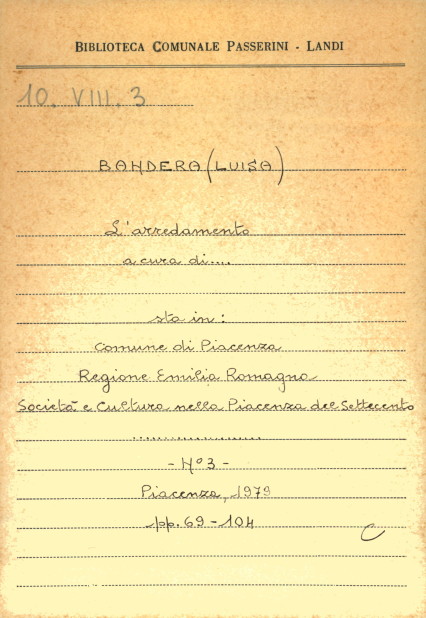 BIBLIOTECA COMUNALE PASSERINI - LANDI
10. VIII. 3
BANDERA (LUISA)
L'arredamento
a cura di....
sta in:
Comune di Piacenza
Regione Emilia Romagna
Società e Cultura nella Piacenza del Settecento
......................
- N° 3 -
Piacenza, 1979
pp. 69 - 104
C